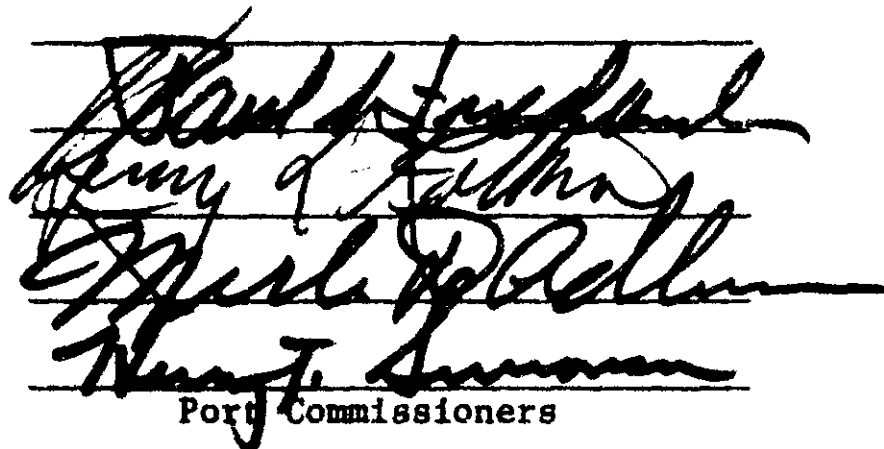 Paul
Henry L
Merle D Adlum
Henry T. Simonson
Port Commissioners